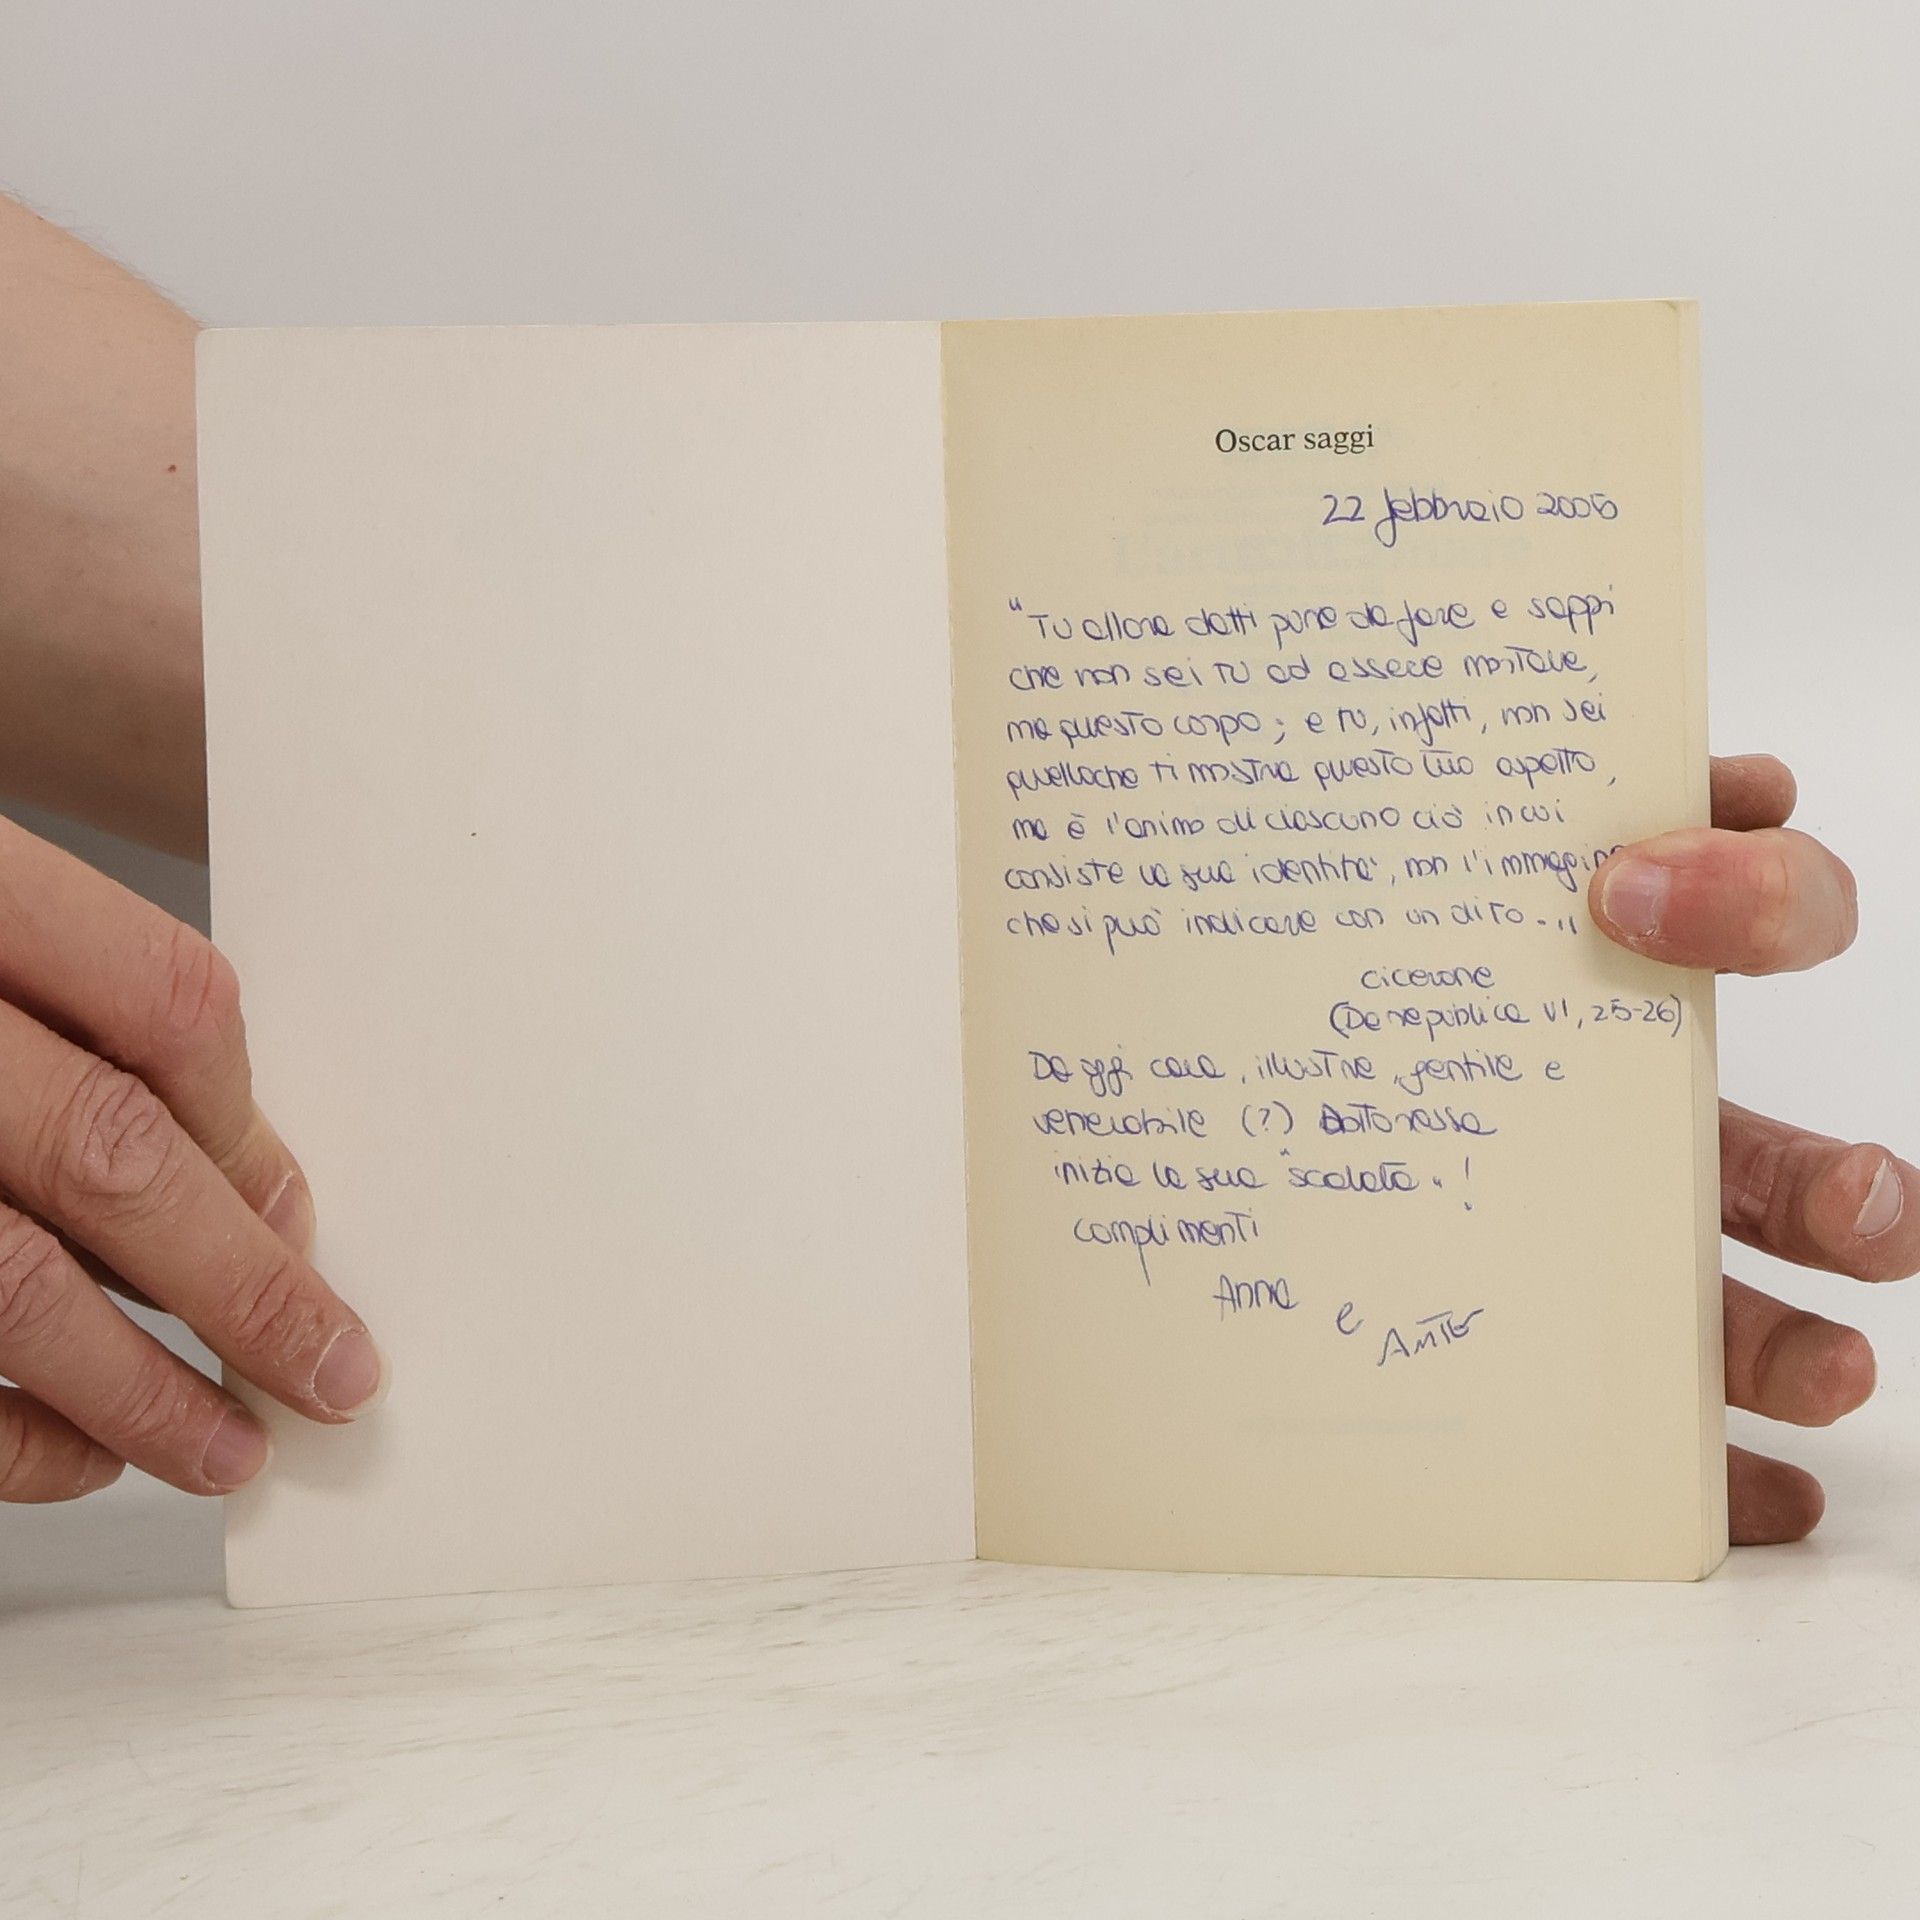 Oscar saggi
22 febbraio 2005
"Tu allora datti pure da fare e sappi
che non sei tu ad essere mortale,
ma questo corpo; e tu, infatti, non sei
quelloche ti mostra questo tuo aspetto,
ma è l'animo di ciascuno ciò in cui
consiste la sua identità, non l'immagine
che si può indicare con un dito."
Cicerone
(De republica VI, 25-26)
Da oggi cara, illustre, gentile e
venerabile (?) Dottoressa
inizia la sua "scalata"!
Complimenti
Anna
e